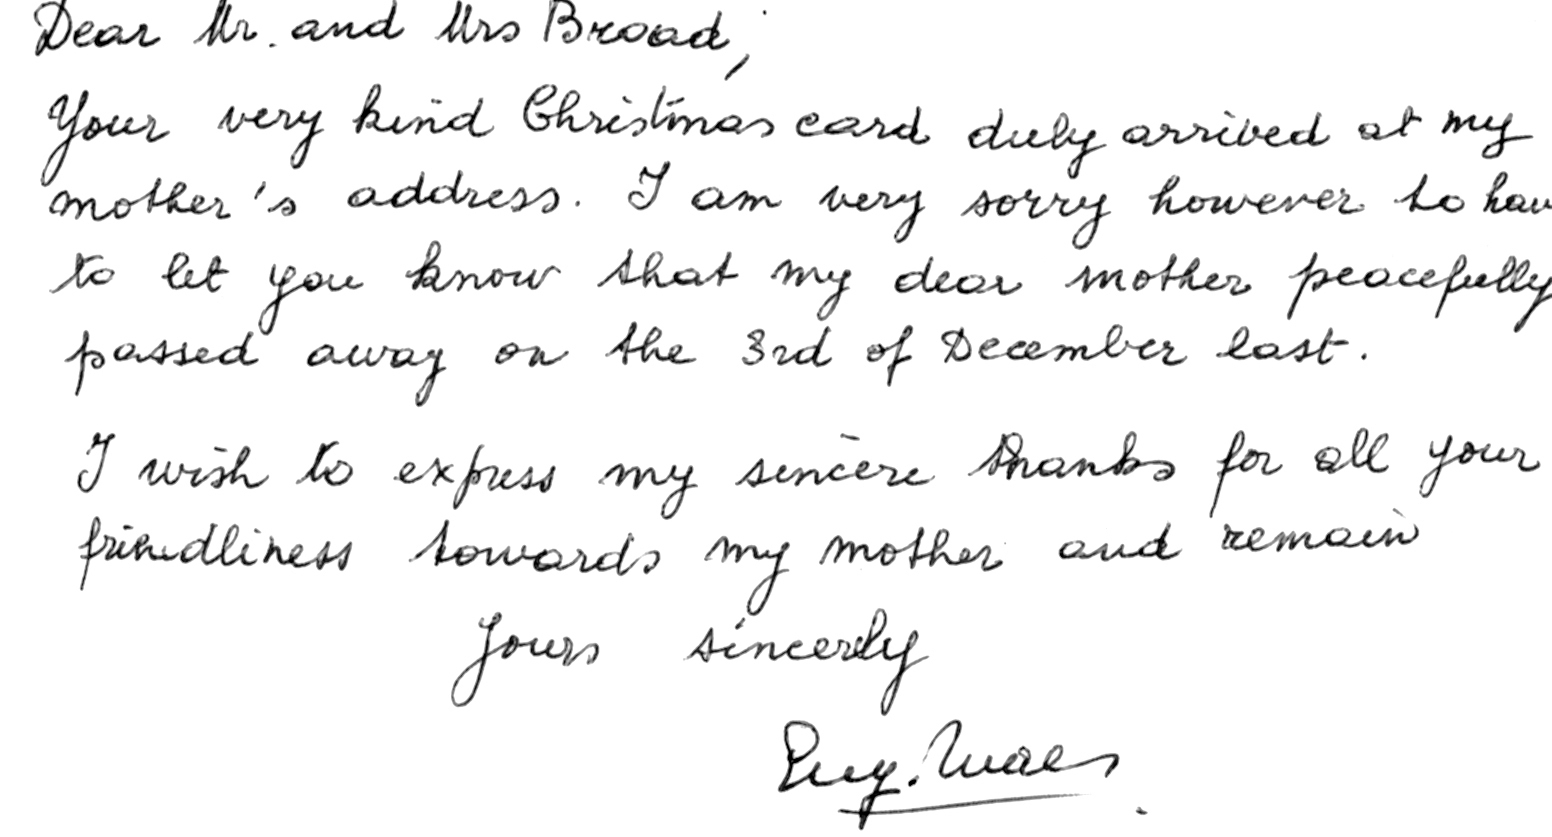 Dear Mr. and Mrs Broad,
Your very kind Christmas card duly arrived at my
mother's address. I am very sorry however to hav
to let you know that my dear mother peacefully
passed away on the 3rd of December last.
I wish to express my sincere thanks for all your
friendliness towards my mother and remain
Yours sincerly
Eug. Maes